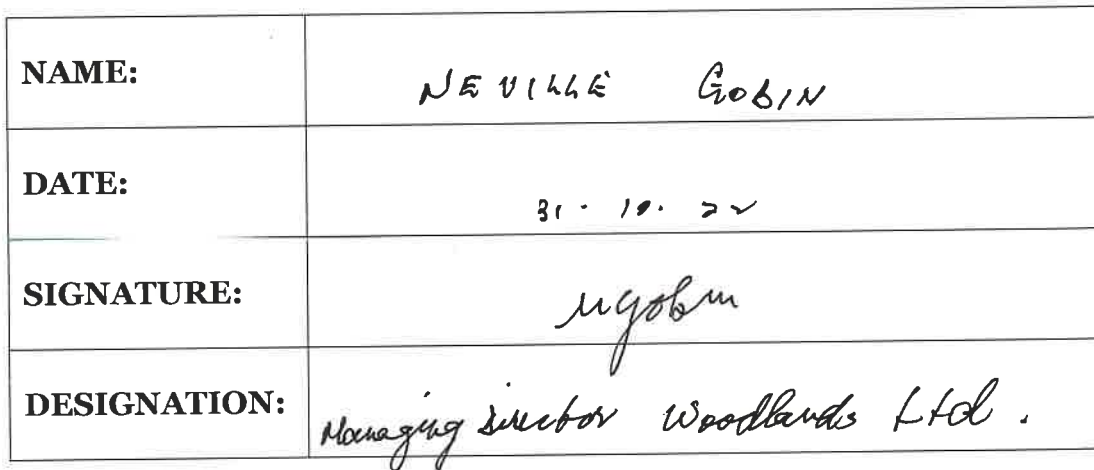 NAME: NEVILLE GOBIN
DATE: 31 . 10 . 22
SIGNATURE: NGobin
DESIGNATION: Managing Director Woodlands Ltd.